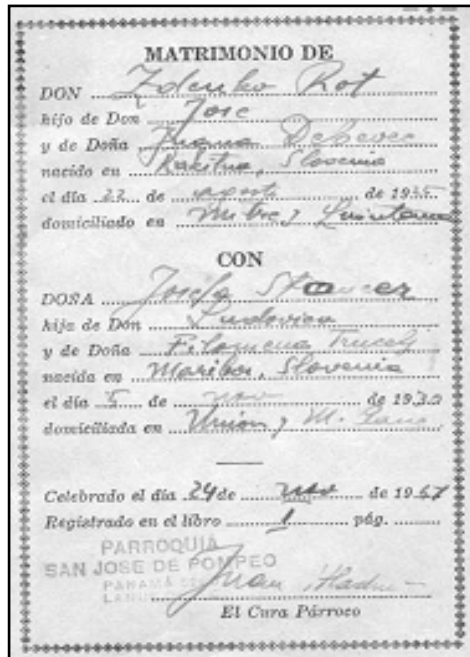 MATRIMONIO DE
DON Zdenko Rot
hijo de Don José
y de Doña Debevec
nacido en Rakitna, Slovenia
el día 22 de agosto de 19
domiciliado en Mitre y Quintana
CON
DOÑA Josefa
hija de Don Ludovico
y de Doña Filomena
nacida en Maribor, Slovenia
el día 5 de nov de 1930
domiciliada en Unión y M.
Celebrado el día 24 de nov de 1957
Registrado en el libro 1 pág.
PARROQUIA
SAN JOSE DE POMPEO
PANAMÁ
Juan
El Cura Párroco